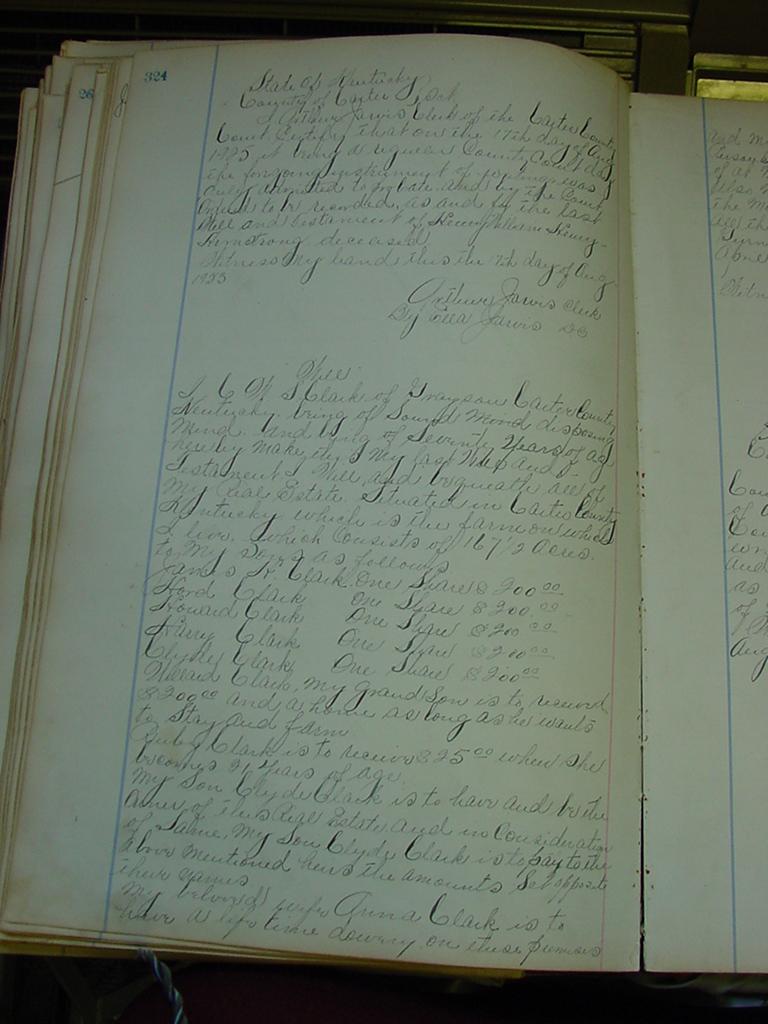 324
State Of Kentucky
County of Carter Sct
I Arthur Jarvis, Clerk of the Carter County
Court Certify that on the 17th day of Aug
1925 it being a regular County Court day
the forgoing instrument of was
duly admitted to probate and by the Court
Orderd to be recorded, as and for the last
Will and Testament of Henry William Henry
Armstrong deceased
Witness My hand this the 17th day of Aug
1925
Arthur Jarvis Clerk
By Ella Jarvis DC
Will
I C W S Clark of Grayson Carter County
Kentucky. being of Sound Mind disposing
Mind. and being of Seventy Years of ag
hereby make this My last Will and
Testament I Will and bequeath all of
My Real Estate. Situated in Carter County
Kentucky which is the farm on which
I live. which Consists of 167 1/2 Acres.
to My sons as follows
James K. Clark One Share $200.00
Ford Clark One Share $200.00
Howard Clark One Share $200.00
Harry Clark One Share $200.00
Clyde Clark One Share $200.00
Willard Clark, My Grand Son is to receive
$200.00 and a home as long as he wants
to Stay and farm
Ruby Clark is to receive $25.00 when she
becomes 21 Years of age
My Son Clyde Clark is to have and be the
owner of this Real Estate and in Consideration
of Same, My Son Clyde Clark is to pay to the
above mentioned heirs the amounts Set opposite
their names
My beloved wife Anna Clark is to
have a life time dowery on these premises
and
of
also
the
all th